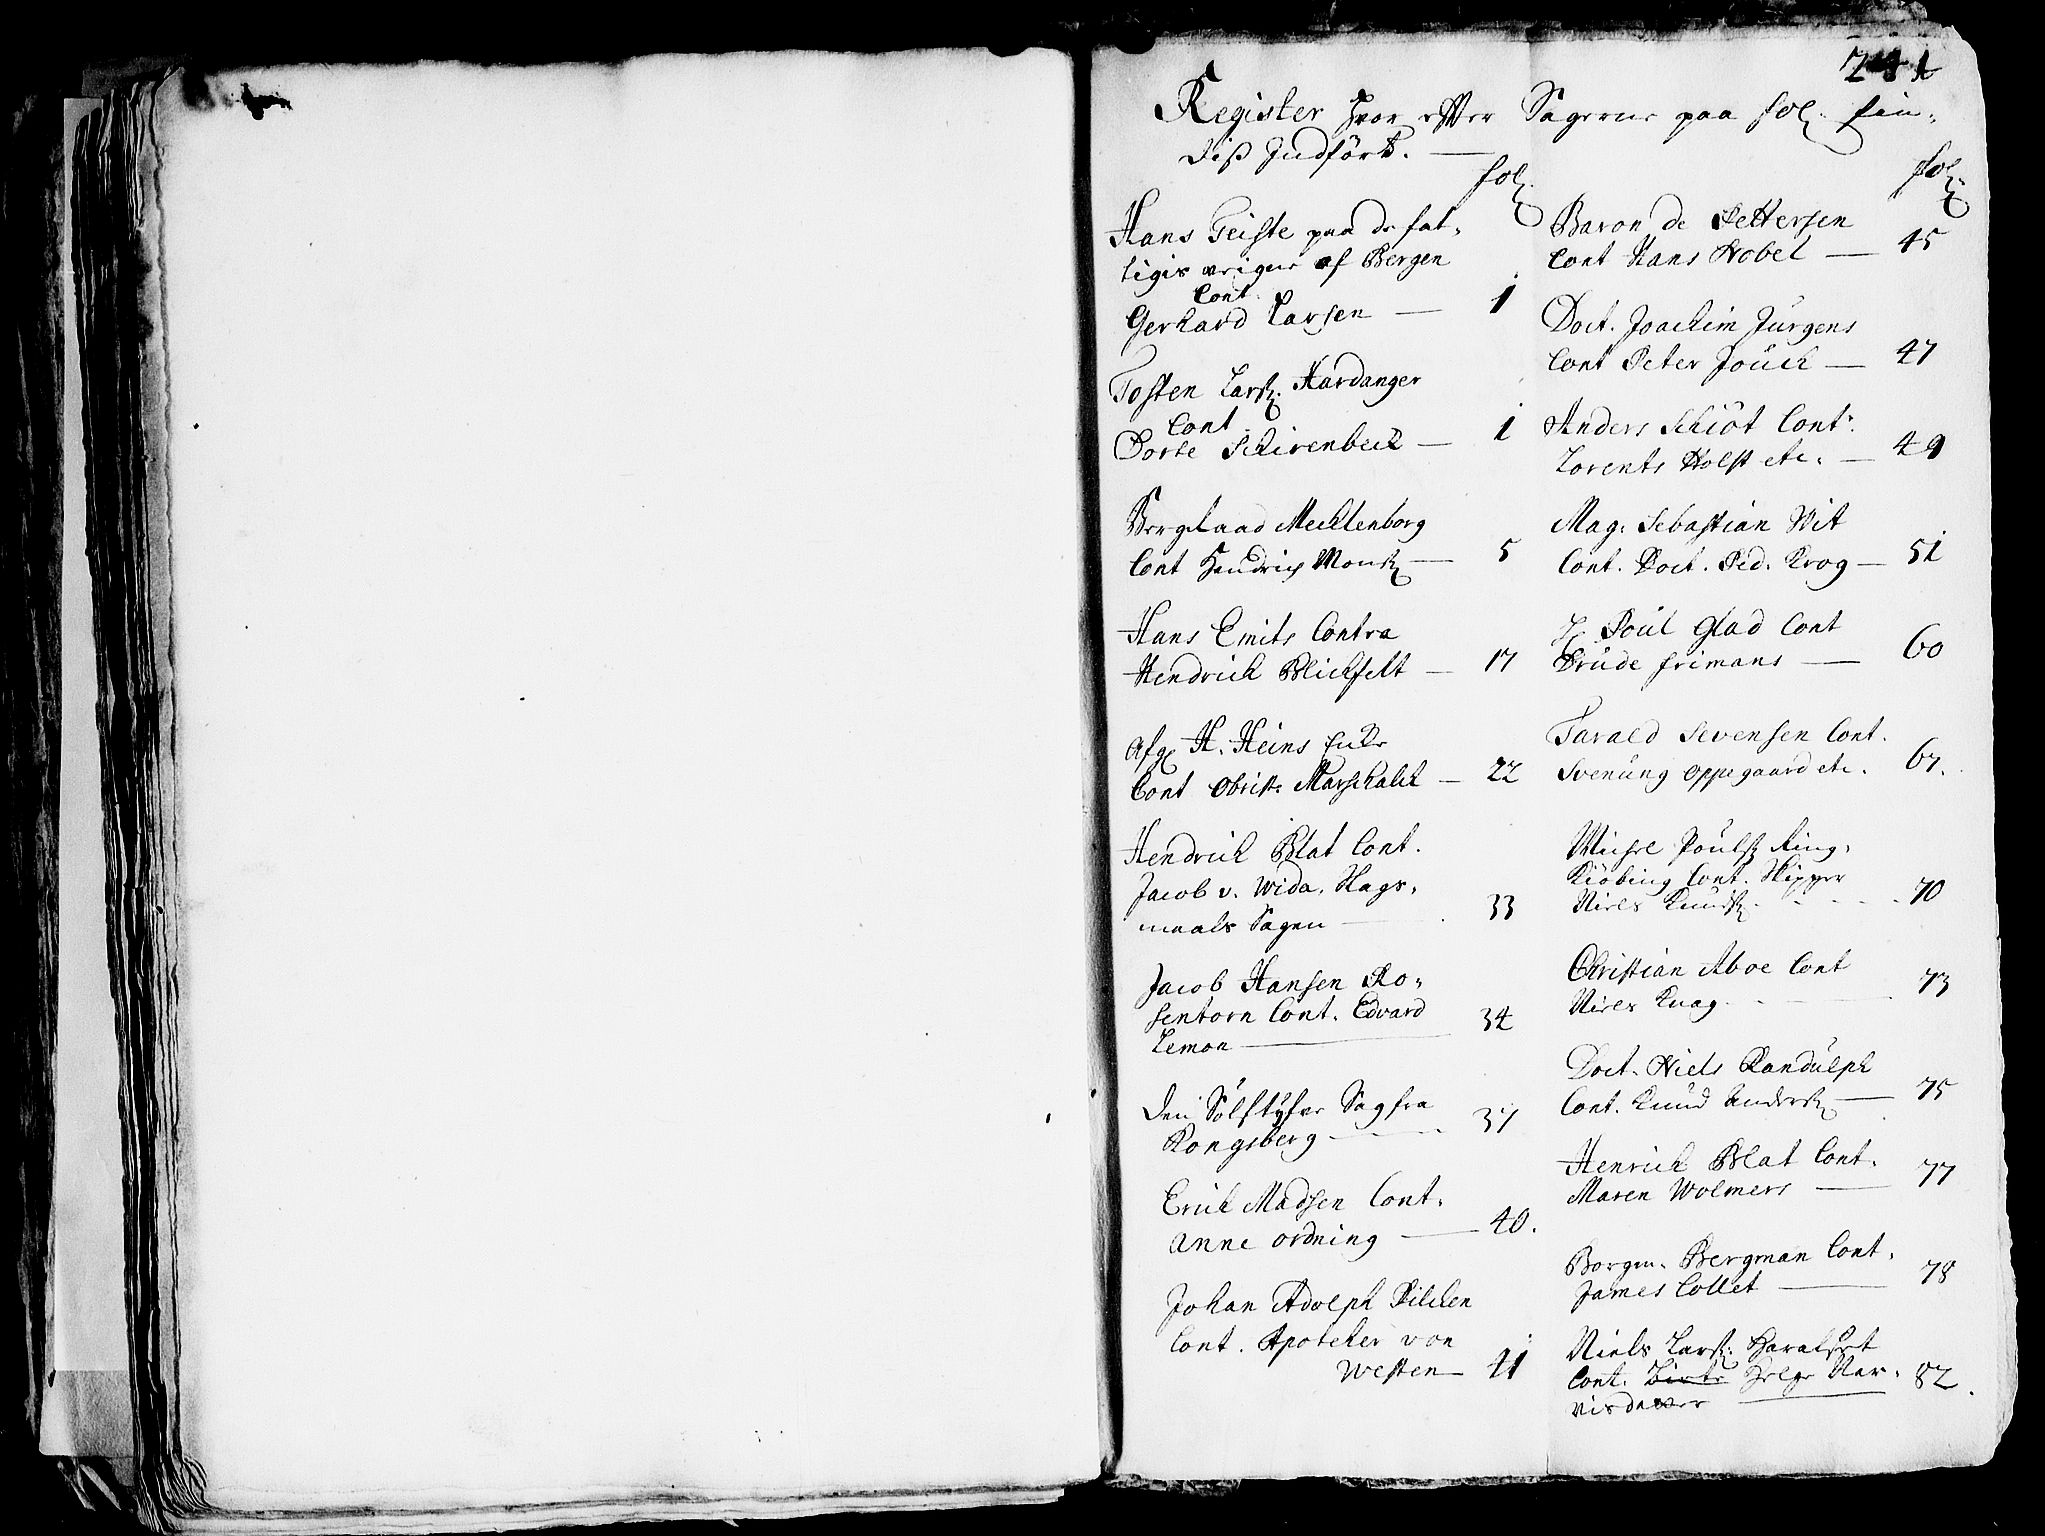 241
Register Hvor effter Sagerne paa fol. fin-
dis Indført. —
fol.
Hans Geiste paa de fat-
tigis vegne af Bergen
Cont.
Gerhard Larsen — 1
Tosten Lars. Hardanger
Cont
Dorte Schirenbeck — 1
Bergraad Mechlenborg
Cont Hendrich Mons. — 5
Hans Emits Contra
Hendrich Blichfelt — 17
Afg. H. Heins Enke
Cont Obrist. Marschalck — 22
Hendrich Blat Cont.
Jacob v. Wida. Slags-
maals Sagen — 33
Jacob Hansen Ro-
sentorn Cont. Edvard
Lemon — 34
Den Sølftyfve Sag fra
Kongsberg — 37
Erich Madsen Cont.
Anne Ordning — 40.
Johan Adolph Pilchen
Cont. Apoteker von
Westen — 41
fol.
Baron de Pettersen
Cont Hans Nobel — 45
Doct. Joachim Jürgens
Cont Peter Jouch — 47
Anders Schiöt Cont.
Lorents Holst etc. — 49
Mag. Sebastian Wit
Cont. Doct. Ped. Krog — 51
H. Poül Glad Cont
Drude Frimans — 60
Tarald Sevensen Cont.
Svenung Oppegaard etc. 67.
Michel Poüls. Ring-
Kiöbing Cont. Skipper
Niels Knuds. 70
Christian Aboe Cont
Niels Knag. 73
Doct. Niels Randulph
Cont. Knud Anders. — 75
Henrich Blat Cont.
Maren Wolmers — 77
Borgm. Bergman Cont.
James Collet — 78
Niels Lars. Haralset
Cont. Birte Helge Nar-
visdatter — 82.